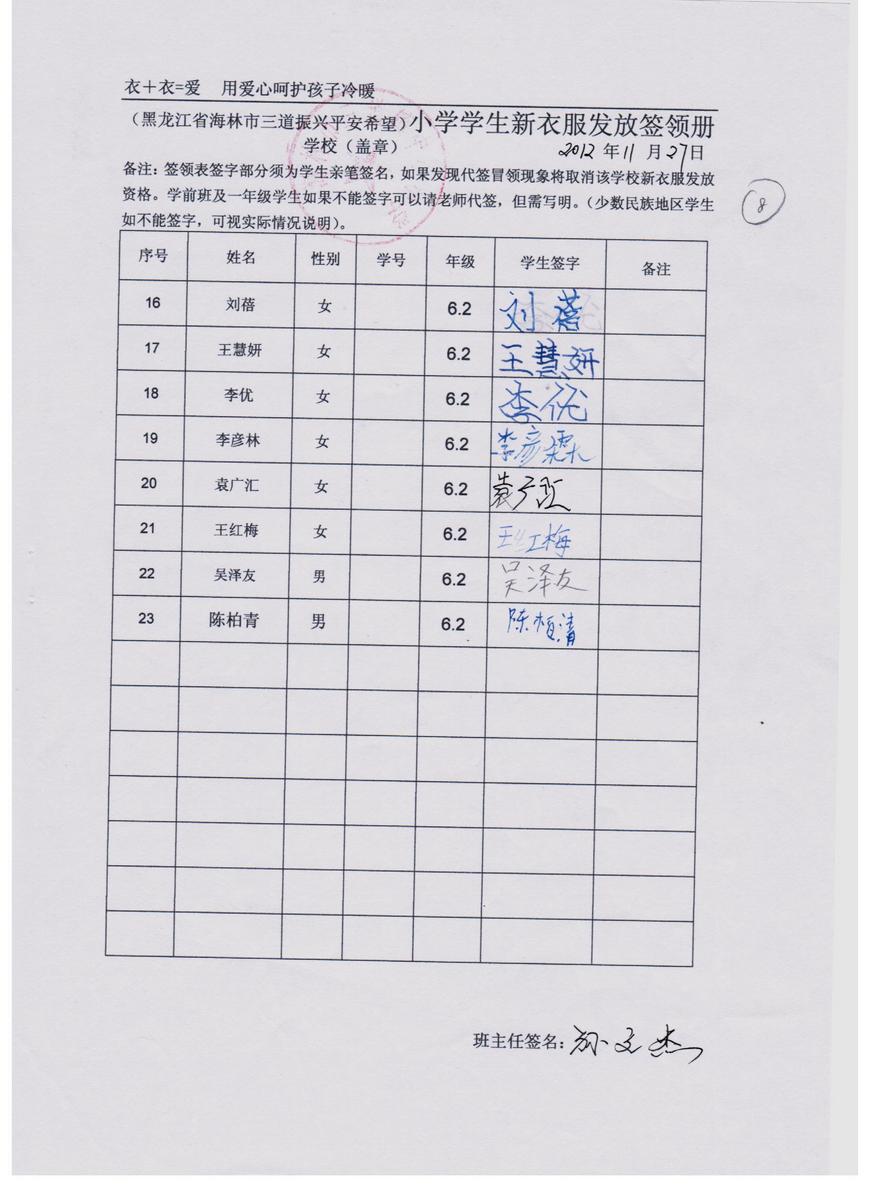 衣＋衣=爱 用爱心呵护孩子冷暖
（黑龙江省海林市三道振兴平安希望）小学学生新衣服发放签领册
学校（盖章） 2012 年 11 月 27 日
备注：签领表签字部分须为学生亲笔签名，如果发现代签冒领现象将取消该学校新衣服发放
资格。学前班及一年级学生如果不能签字可以请老师代签，但需写明。（少数民族地区学生
如不能签字，可视实际情况说明）。
8
序号 姓名 性别 学号 年级 学生签字 备注
16 刘蓓 女 6.2 刘蓓
17 王慧妍 女 6.2 王慧妍
18 李优 女 6.2 李优
19 李彦林 女 6.2 李彦霖
20 袁广汇 女 6.2 袁广汇
21 王红梅 女 6.2 王红梅
22 吴泽友 男 6.2 吴泽友
23 陈柏青 男 6.2 陈柏清
班主任签名：孙文杰